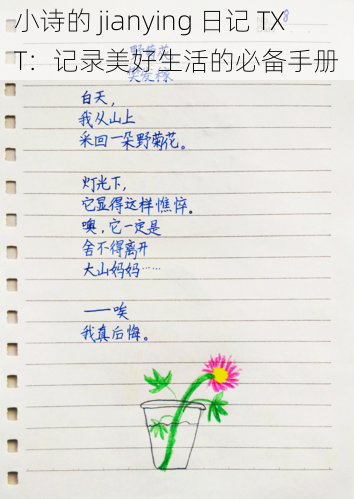 小诗的 jianying 日记 TX
T：记录美好生活的必备手册
野菊花
8
白天，
我从山上
采回一朵野菊花。
灯光下，
它显得这样憔悴。
噢，它一定是
舍不得离开
大山妈妈……
——唉
我真后悔。